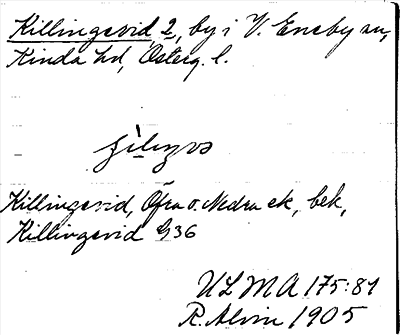 Killingevid 2, by i V. Eneby sn,
Kinda hd, Österg. l.
Killingevid, Öfra o. Nedra ek, bek,
Killingevid G36
ULMA 175:81
R. Alm 1905